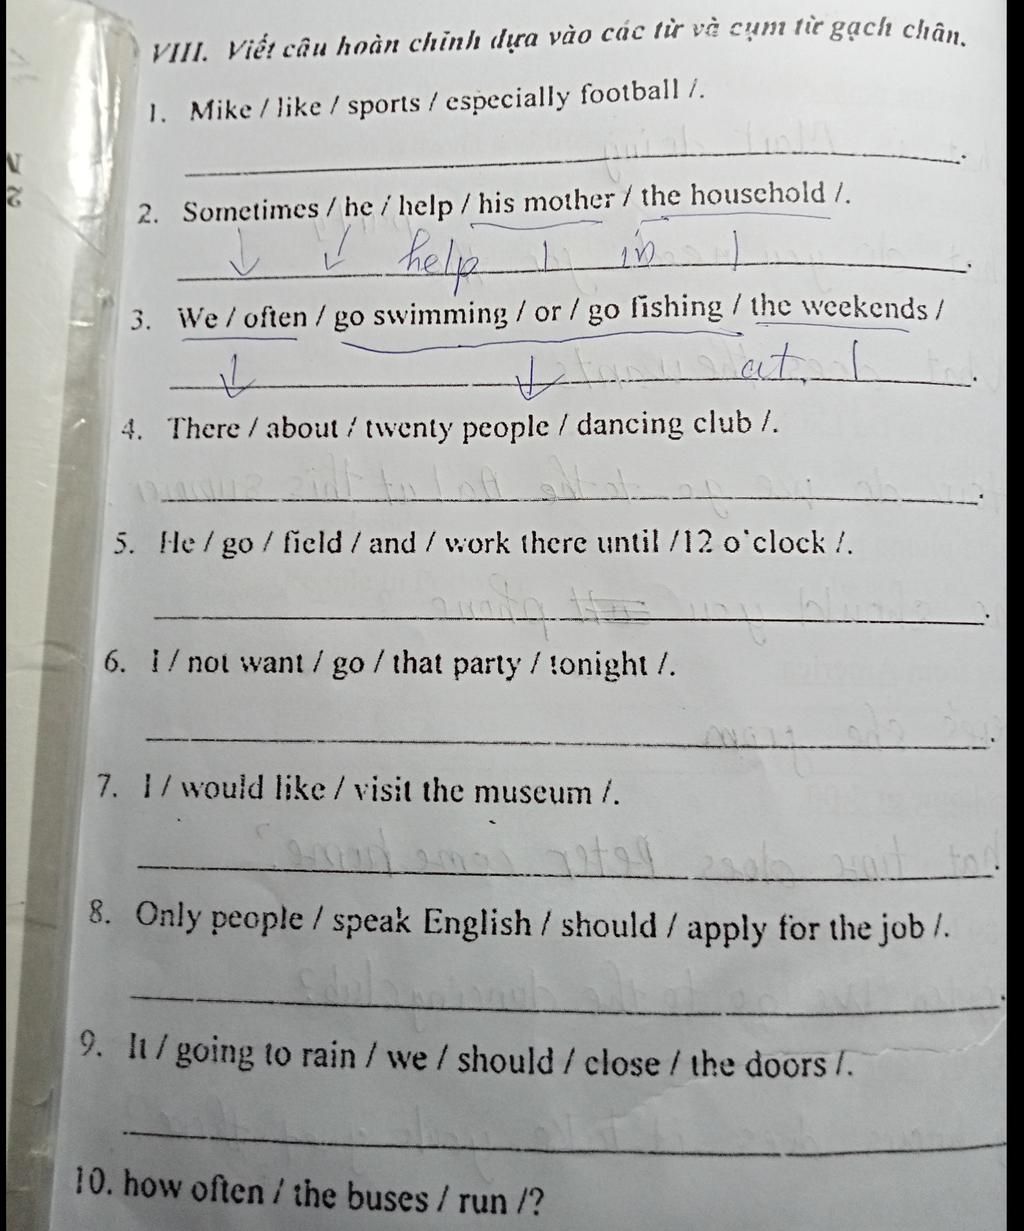 VIII. Viết câu hoàn chỉnh dựa vào các từ và cụm từ gạch chân.
1. Mike / like / sports / especially football /.
2. Sometimes / he / help / his mother / the household /.
help in
3. We / often / go swimming / or / go fishing / the weekends /
at
4. There / about / twenty people / dancing club /.
5. He / go / field / and / work there until /12 o'clock /.
6. I / not want / go / that party / tonight /.
7. I / would like / visit the museum /.
8. Only people / speak English / should / apply for the job /.
9. It / going to rain / we / should / close / the doors /.
10. how often / the buses / run /?